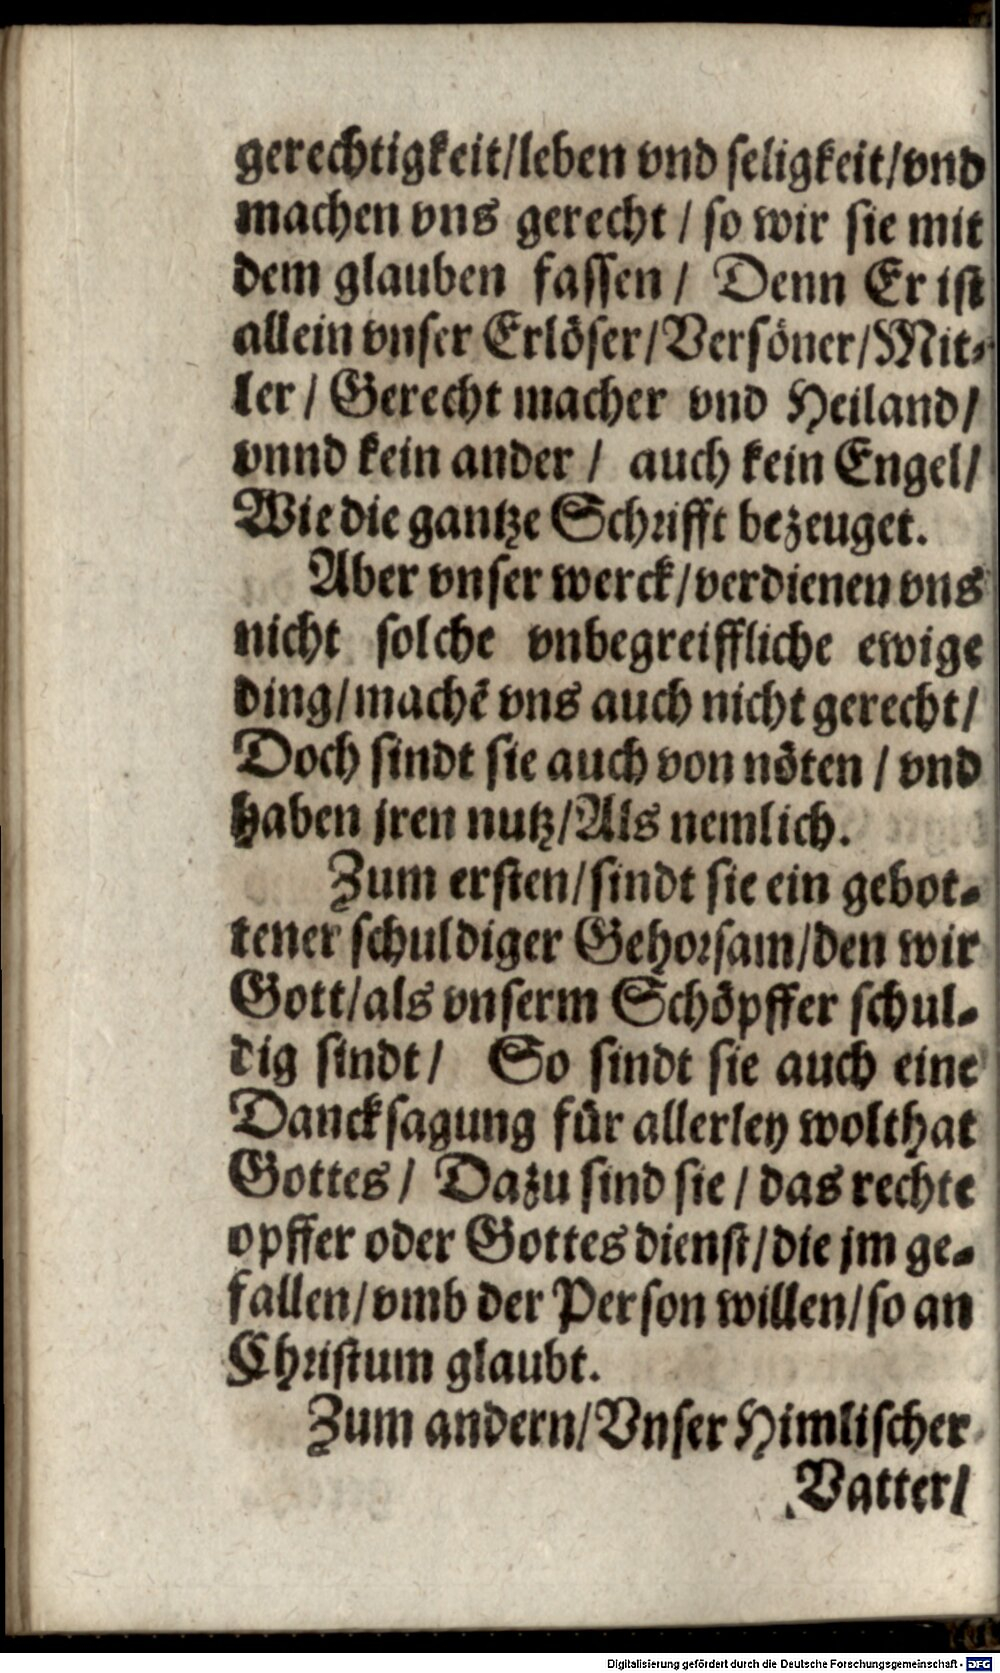 gerechtigkeit/leben vnd seligkeit/vnd
machen vns gerecht / so wir sie mit
dem glauben fassen / Denn Er ist
allein vnser Erlöser/Versöner/Mit-
ler / Gerecht macher vnd Heiland/
vnnd kein ander / auch kein Engel/
Wie die gantze Schrifft bezeuget.
Aber vnser werck/verdienen vns
nicht solche vnbegreiffliche ewige
ding/machē vns auch nicht gerecht/
Doch sindt sie auch von nöten / vnd
haben jren nutz/Als nemlich.
Zum ersten/sindt sie ein gebot-
tener schuldiger Gehorsam/den wir
Gott/als vnserm Schöpffer schul-
dig sindt/ So sindt sie auch eine
Dancksagung für allerley wolthat
Gottes / Dazu sind sie / das rechte
opffer oder Gottes dienst/die jm ge-
fallen/vmb der Person willen/so an
Christum glaubt.
Zum andern/Vnser Himlischer
Vatter/
Digitalisierung gefördert durch die Deutsche Forschungsgemeinschaft - DFG